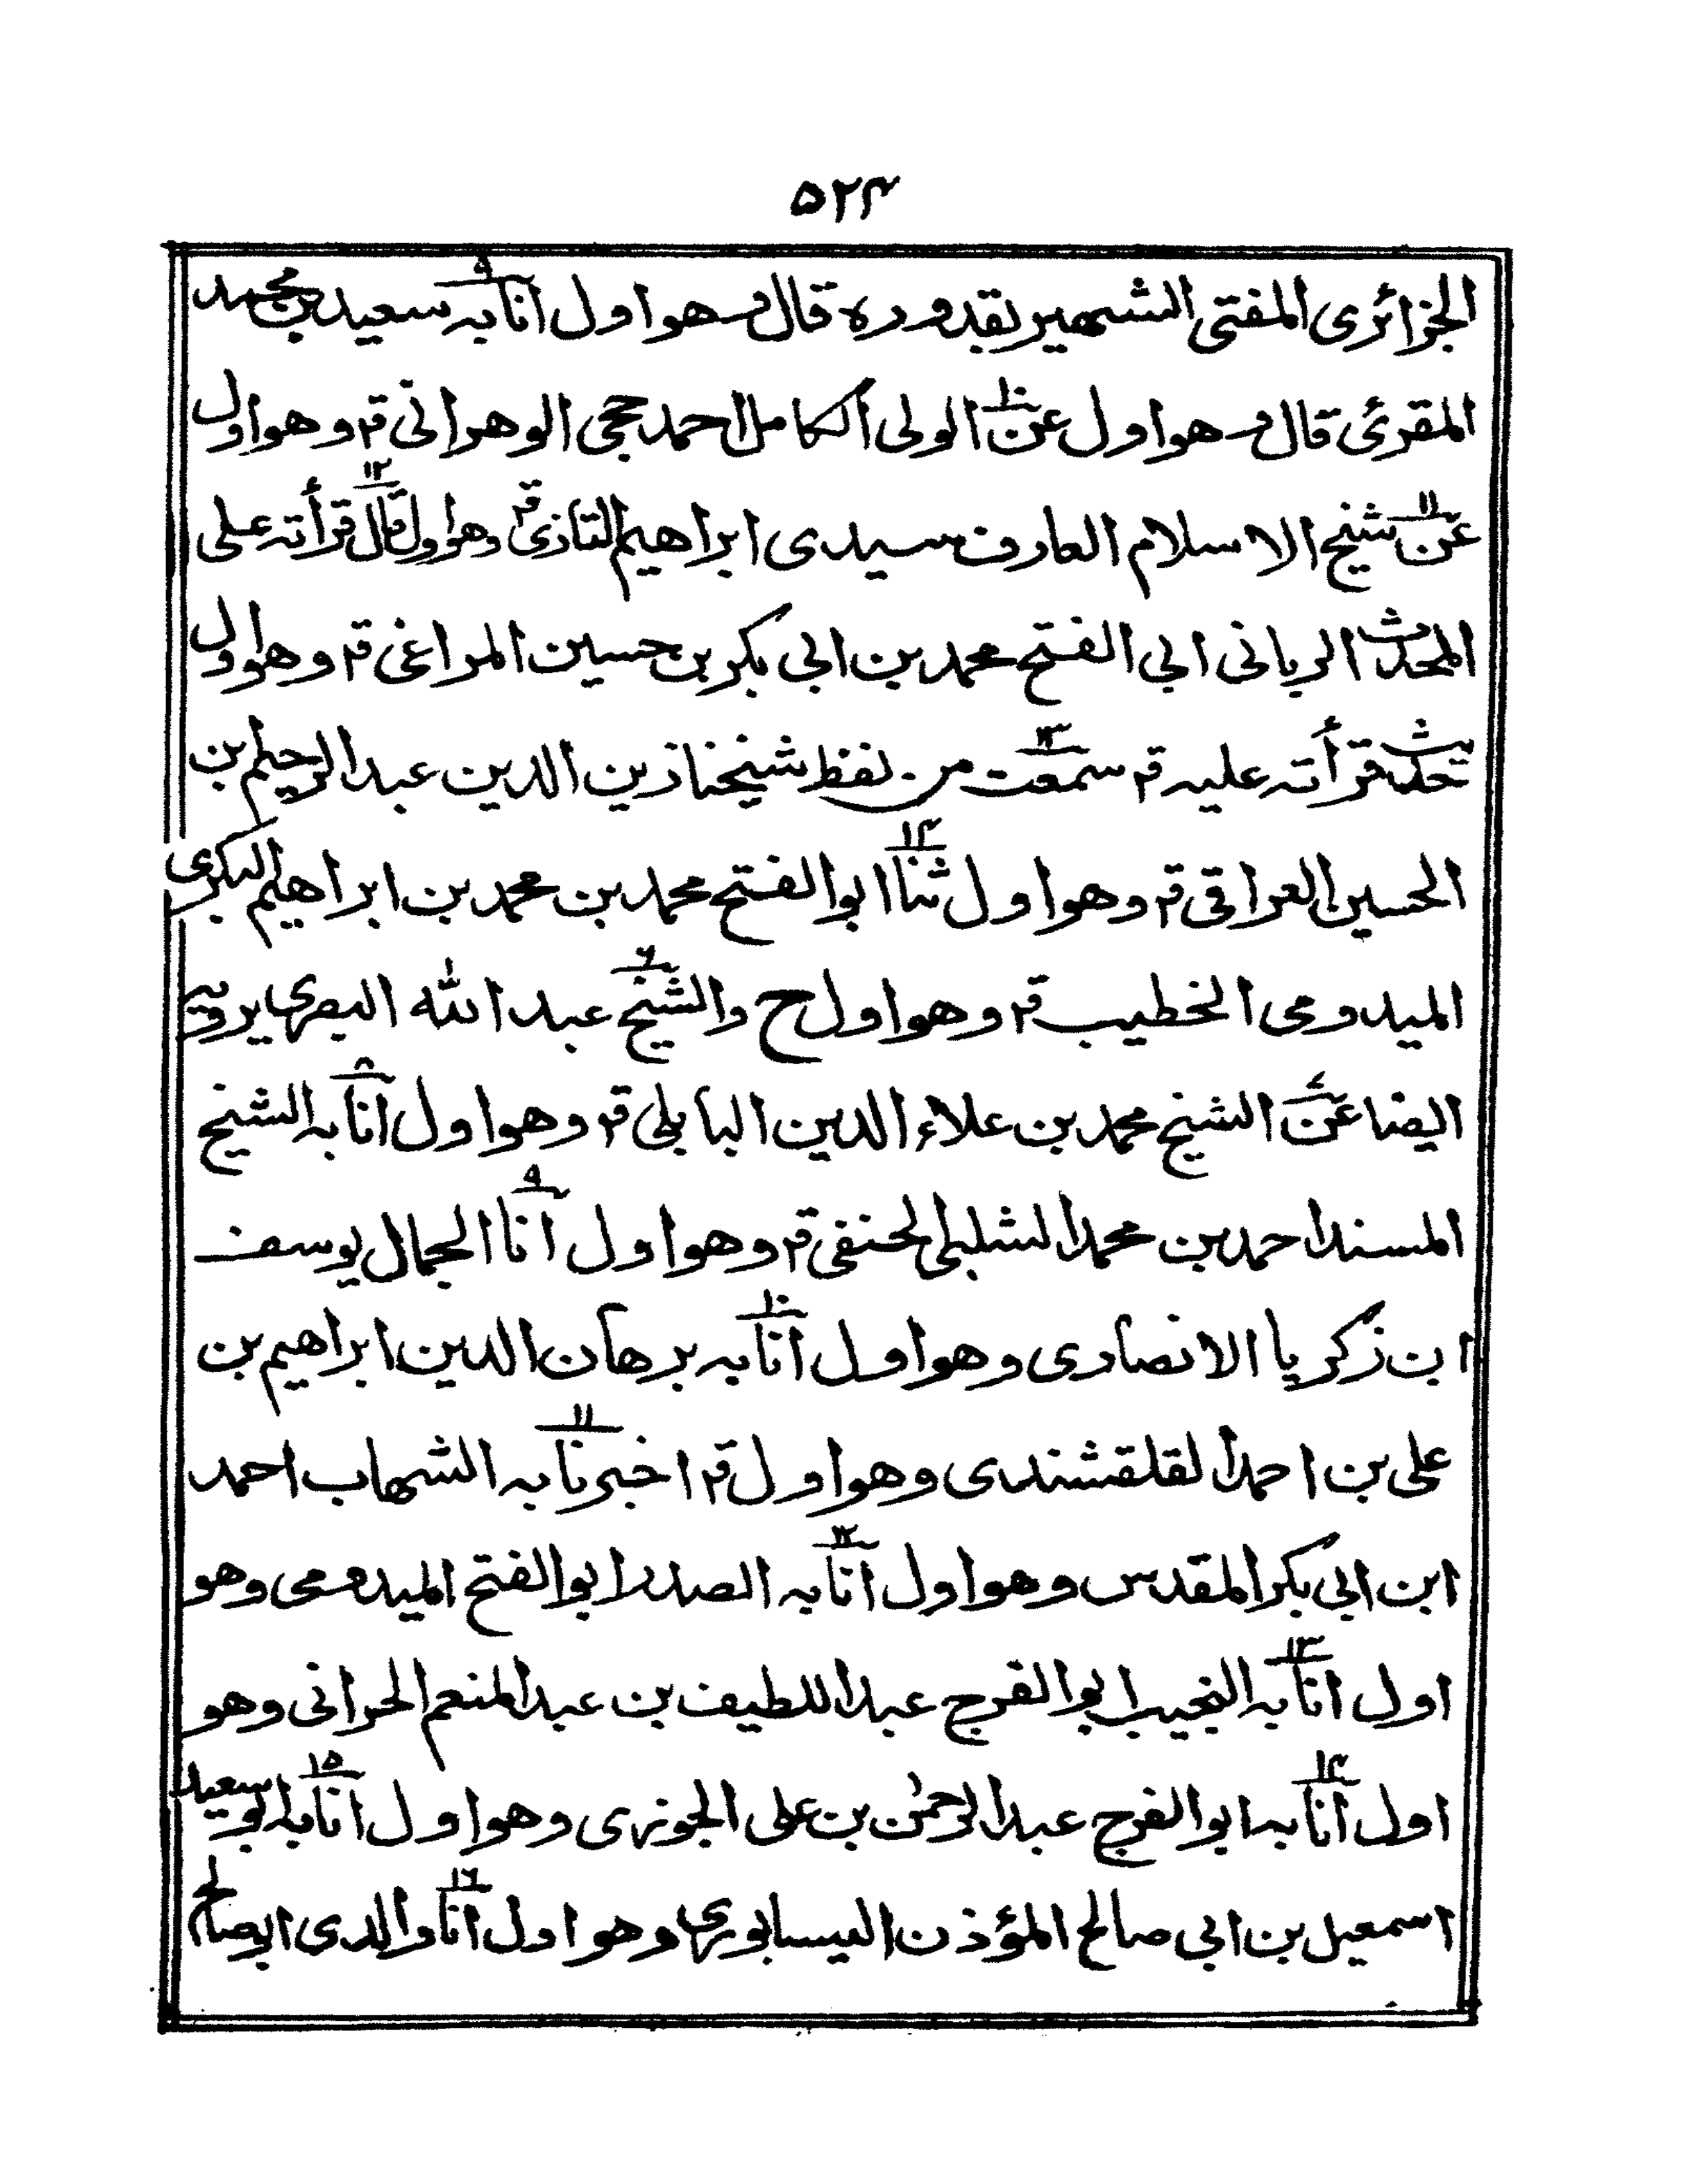 ۵۲۴
الجزائری المفتی الشهیر بقدوره قال وهو اول انا۹ به سعید بن محمد
المقرئ قال وهو اول عن۱۰ الولی الکامل احمد حجی الوهرانی قہ وهو اول
عن۱۱ شیخ الاسلام العارف سیدی ابراهیم التازی قہ وهو اول قال۱۲ قرأته علی
المحدث الربانی ابی الفتح محمد بن ابی بکر بن حسین المراغی قہ وهو اول
حدیث قرأته علیه قہ سمعت۱۳ من لفظ شیخنا زین الدین عبد الرحیم بن
الحسین العراقی قہ وهو اول ثنا۱۴ ابو الفتح محمد بن محمد بن ابراهیم البکری
المیدومی الخطیب قہ وهو اول ح والشیخ۶ عبد الله البصری یرویہ
ایضا عن۷ الشیخ محمد بن علاء الدین البابلی قہ وهو اول انا۸ به الشیخ
المسند احمد بن محمد الشلبی الحنفی قہ وهو اول انا۹ الجمال یوسف
ابن زکریا الانصاری وهو اول انا۱۰ به برهان الدین ابراهیم بن
علی بن احمد القلقشندی وهو اول قہ اخبرنا۱۱ به الشهاب احمد
ابن ابی بکر المقدس وهو اول انا۱۲ به الصدر ابو الفتح المیدومی وهو
اول انا۱۳ به النجیب ابو الفرج عبد اللطیف بن عبد المنعم الحرانی وهو
اول انا۱۴ به ابو الفرج عبد الرحمٰن بن علی الجوزی وهو اول انا۱۵ به ابو سعید
اسمعیل بن ابی صالح المؤذن النیسابوری وهو اول انا۱۶ والدی ابو صالح